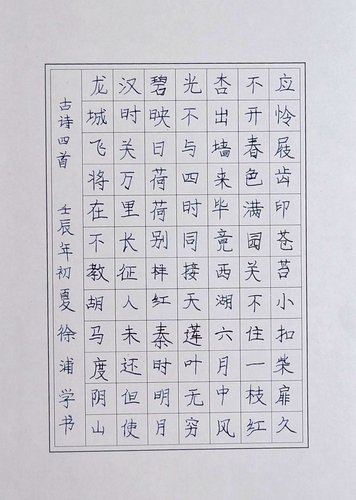 应怜屐齿印苍苔小扣柴扉久
不开春色满园关不住一枝红
杏出墙来毕竟西湖六月中风
光不与四时同接天莲叶无穷
碧映日荷荷别样红秦时明月
汉时关万里长征人未还但使
龙城飞将在不教胡马度阴山
古诗四首 壬辰年初夏徐浦学书